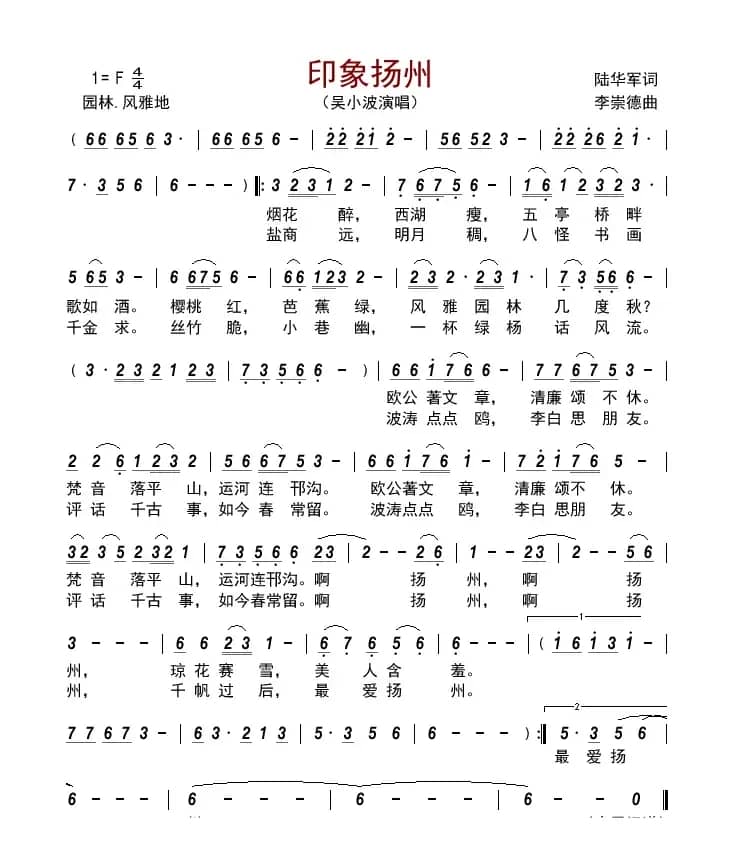 印象扬州
1= F 4/4
陆华军词
园林.风雅地
（吴小波演唱）
李崇德曲
( 66 65 6 3· | 66 65 6 - | 22 221 2 - | 56 52 3 - | 22 226 2 1· |
7· 3 5 6 | 6 - - - ) ‖: 3 2 3 1 2 - | 7 6 7 5 6 - | 1 6 1 2 3 2 3· |
烟花 醉， 西湖 瘦， 五 亭 桥 畔
盐商 远， 明月 稠， 八 怪 书 画
5 65 3 - | 6 675 6 - | 66 123 2 - | 2 3 2· 2 3 1 | 7 3 5 6 6 - |
歌如 酒。 樱桃 红， 芭 蕉 绿， 风 雅 园 林 几 度 秋？
千金 求。 丝竹 脆， 小 巷 幽， 一 杯 绿 杨 话 风 流。
( 3· 2 3 2 1 2 2 3 | 7 3 5 6 6 - ) | 6 6 1 7 6 6 - | 7 7 6 7 5 3 - |
欧公 著文 章， 清廉 颂 不 休。
波涛 点点 鸥， 李白 思 朋 友。
2 2 6 1 2 3 2 | 5 6 6 6 7 5 3 - | 6 6 1 7 6 6 - | 7 2 1 7 6 5 - |
梵 音 落平 山，运河 连 邗沟。 欧公著文 章， 清廉 颂不 休。
评 话 千古 事，如今 春 常留。 波涛点点 鸥， 李白 思朋 友。
32 3 5 2 321 2 | 7 3 5 6 6 23 | 2 - - 2 6 | 1 - - 23 | 2 - - 5 6 |
梵 音 落平 山，运河连邗沟。啊 扬 州，啊 扬
评 话 千古 事，如今春常留。啊 扬 州，啊 扬
1
3 - - - | 6 6 2 3 3 | 6 7 6 5 6 | 6 - - - | ( 1 6 1 3 1 - |
州， 琼 花 赛 雪， 美 人 含 羞。
州， 千 帆 过 后， 最 爱 扬 州。
2
7 7 6 7 3 - | 6 3· 2 1 3 | 5· 3 5 6 | 6 - - - ) :‖ 5· 3 5 6 |
最 爱 扬
6 - - - | 6 - - - | 6 - - - | 6 - - 0 ‖